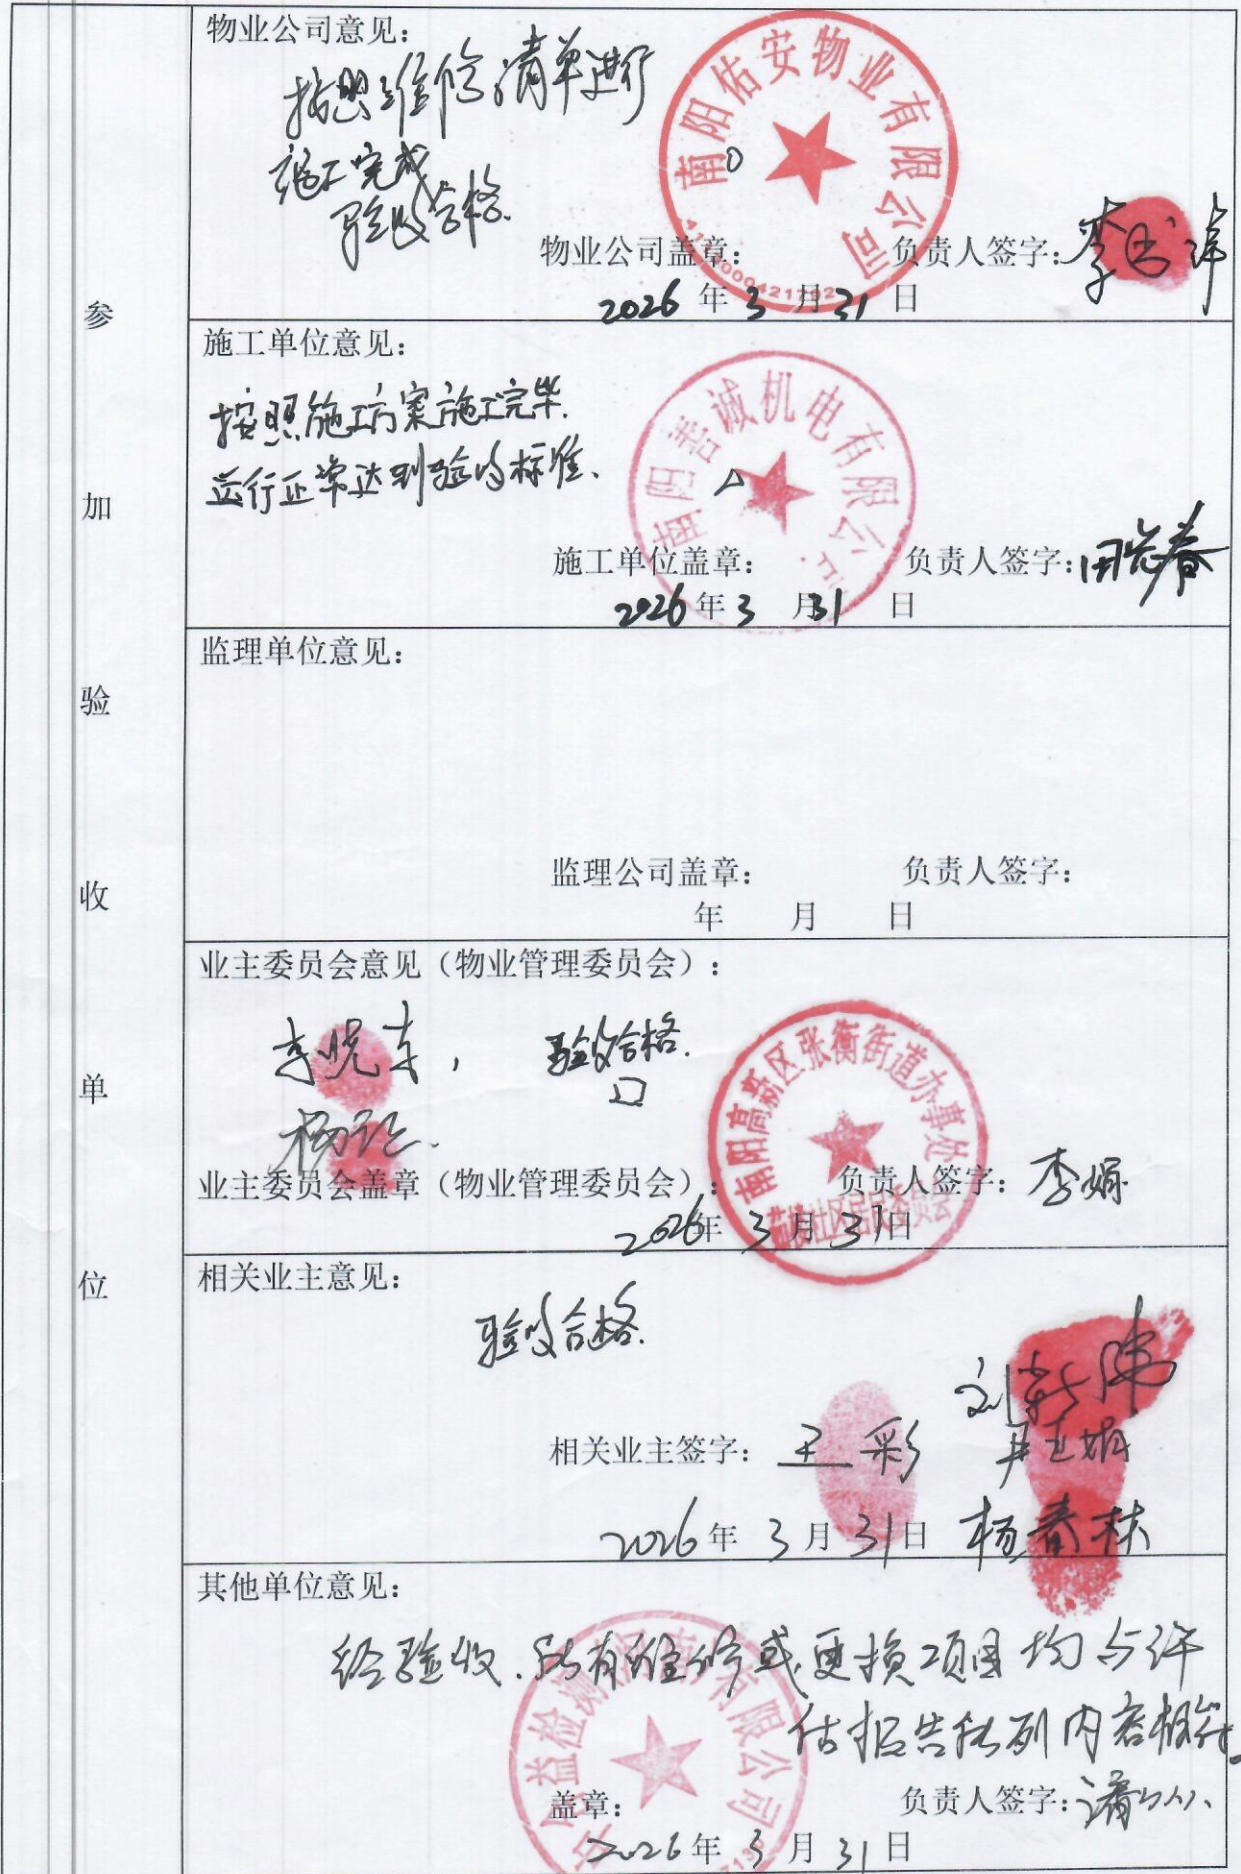 参加验收单位
物业公司意见：
按照维修清单进行
施工完成
验收合格.
南阳佑安物业有限公司
物业公司盖章： 负责人签字：李
2026年3月31日
施工单位意见：
按照施工方案施工完毕.
运行正常达到验收标准.
南阳 诚机电有限公司
施工单位盖章： 负责人签字：
2026年3月31日
监理单位意见：
监理公司盖章： 负责人签字：
年 月 日
业主委员会意见（物业管理委员会）：
李晓东， 验收合格.
杨
南阳高新区张衡街道办事处
社区居民委员会
业主委员会盖章（物业管理委员会）： 负责人签字：李娟
2026年3月31日
相关业主意见：
验收合格.
刘新伟
相关业主签字：王彩 尹玉娟
2026年3月31日 杨春林
其他单位意见：
经验收.所有维修或更换项目均与评
估报告所列内容相符.
益检测 有限公司
盖章： 负责人签字：潘
2026年3月31日